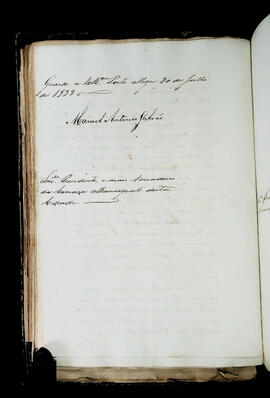 Guarde a V. Mces Porto Alegre 30 de Julho
de 1833
Manuel Antonio Galvão
Snrs Presidente, e mais Vereadores
da Camara Municipal desta
Cidade